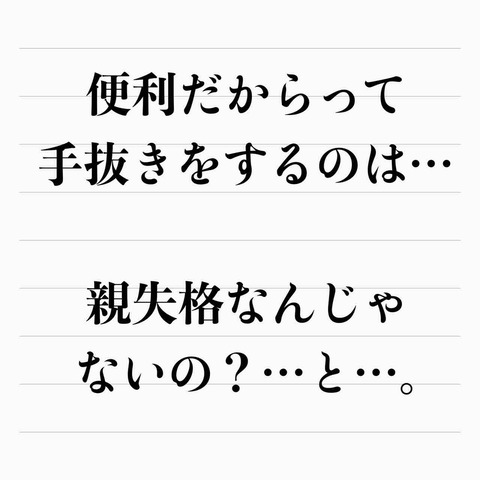 便利だからって
手抜きをするのは…
親失格なんじゃ
ないの？…と…。